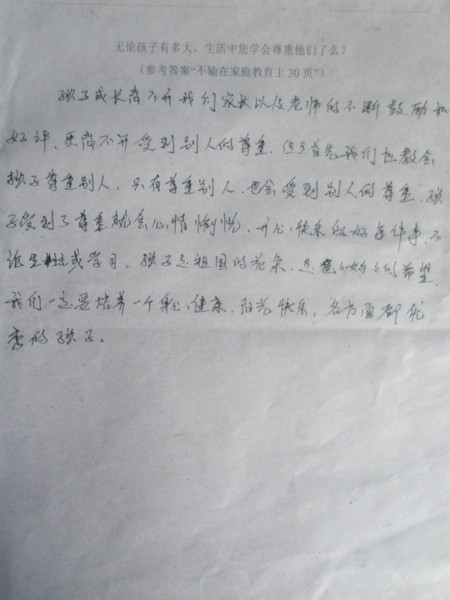 无论孩子有多大,生活中您学会尊重他们了么?
(参考答案“不输在家庭教育上30页”)
孩子成长离不开我们家长以及老师的不断鼓励和
好评、更离不开受到别人的尊重。但是首先我们也教会
孩子尊重别人,只有尊重别人,也会受到别人的尊重。孩
子受到了尊重就会心情愉悦、开心、快乐的做好每件事,不
论生活或学习。孩子是祖国的花朵,是爸爸妈妈的希望
我们一定要培养一个身心健康、阳光快乐,各方面都优
秀的孩子。